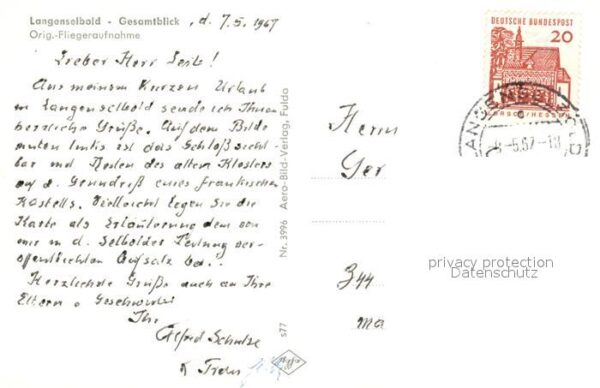 Langenselbold - Gesamtblick , d. 7.5.1967
Orig.-Fliegeraufnahme
Lieber Herr Seitz!
Aus meinem kurzen Urlaub
in Langenselbold sende ich Ihnen
herzliche Grüße. Auf dem Bilde
unten links ist das Schloß sicht-
bar mit Resten des alten Klosters
auf d. Grundriß eines fränkischen
Kastells. Vielleicht legen Sie die
Karte als Erläuterung dem von
mir in d. Selbolder Zeitung ver-
öffentlichten Aufsatz bei.
Herzliche Grüße auch an Ihre
Eltern u. Geschwister
Ihr
Alfred Schulze
Nr. 3996 Aero-Bild-Verlag, Fulda
s77
DEUTSCHE BUNDESPOST
20
LORSCH/HESSEN
LANGENSELBOLD
-5.67-18
Herrn
Ger
344
Ma
privacy protection
Datenschutz